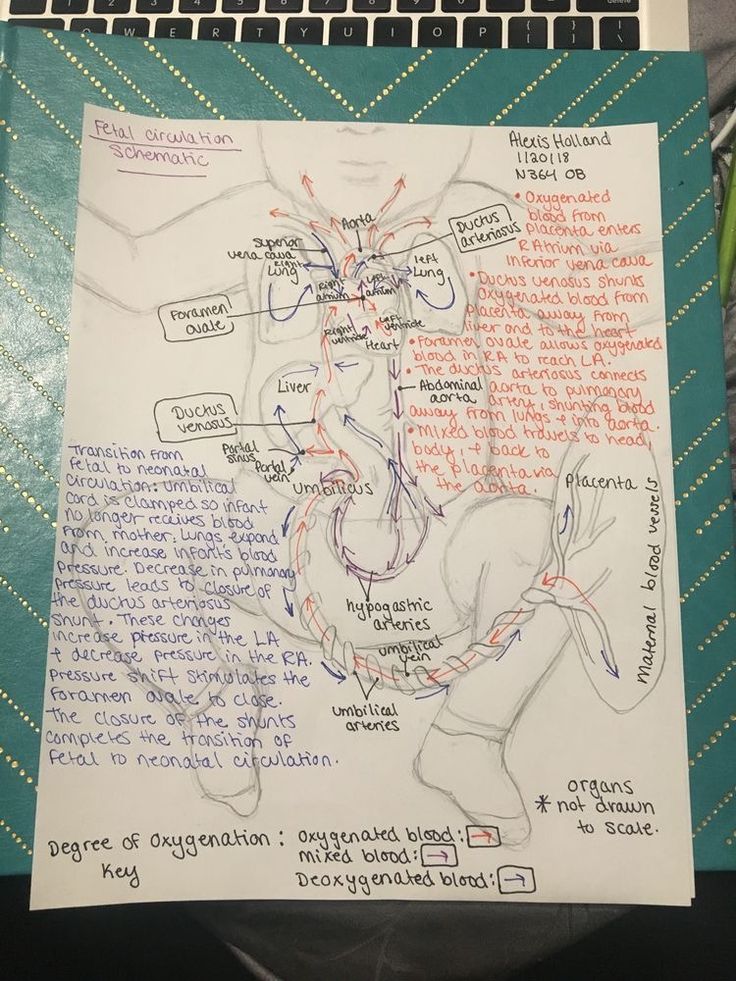 Fetal circulation
Schematic
Alexis Holland
1/20/18
N364 OB
• Oxygenated
blood from
placenta enters
R Atrium via
inferior vena cava
• Ductus venosus shunts
oxygenated blood from
placenta away from
liver and to the heart
• Foramen ovale allows oxygenated
blood in RA to reach LA.
• The ductus arteriosus connects
aorta to pulmonary
artery, shunting blood
away from lungs & into aorta.
• Mixed blood travels to head,
body, & back to
the placenta via
the aorta.
Aorta
Ductus
arteriosus
Superior
vena cava
Right
Lung
left
Lung
Right
atrium
Left
atrium
Foramen
ovale
Right
ventricle
Left
ventricle
Heart
Liver
Abdominal
aorta
Ductus
venosus
Portal
sinus
Portal
vein
Umbilicus
Placenta
Maternal blood vessels
hypogastric
arteries
umbilical
vein
umbilical
arteries
Transition from
Fetal to neonatal
circulation: umbilical
cord is clamped so infant
no longer receives blood
from mother. Lungs expand
and increase infant's blood
pressure. Decrease in pulmonary
pressure leads to closure of
the ductus arteriosus
shunt. These changes
increase pressure in the LA
& decrease pressure in the RA.
Pressure shift stimulates the
foramen ovale to close.
The closure of the shunts
completes the transition of
fetal to neonatal circulation.
organs
* not drawn
to scale.
Degree of Oxygenation :
Key
Oxygenated blood: →
Mixed blood: →
Deoxygenated blood: →
Q W E R T Y U I O P { [ } ] | \
delete